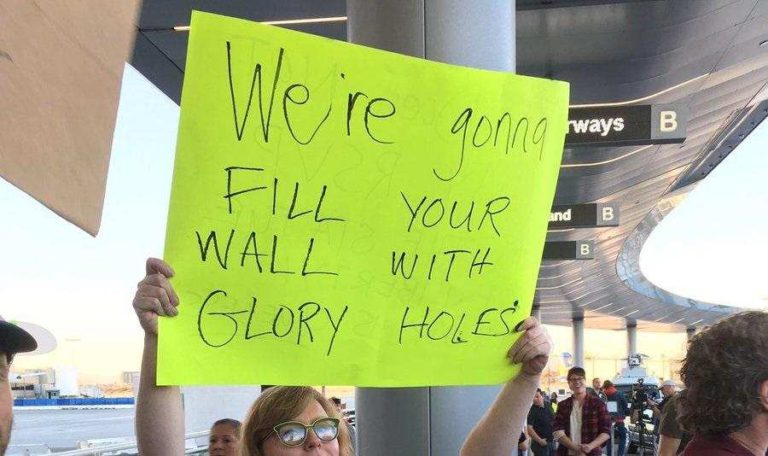 We're gonna
FILL YOUR
WALL WITH
GLORY HOLES
rways B
and B
B